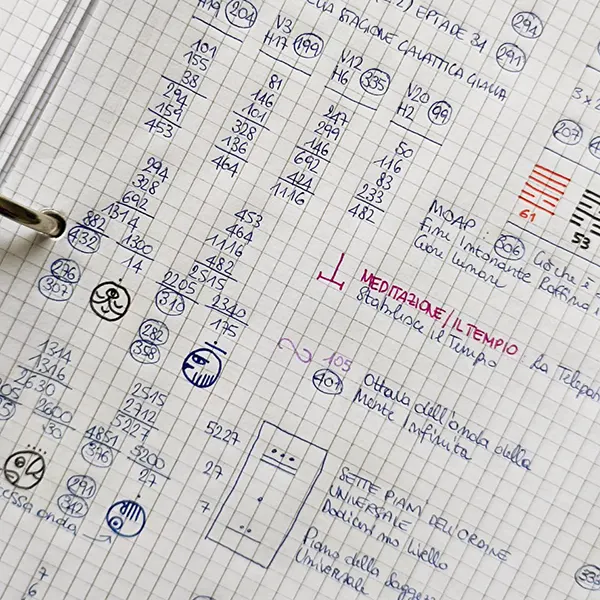 H19 204
V3
H17 199
V12
H6 335
V20
H2 99
EPTADE 31 291
STAGIONE GALATTICA GIALLA
291
101
155
38
294
159
453
81
146
101
328
136
464
247
299
146
692
424
1116
50
116
83
233
482
3 x 2
207
61
53
294
328
692
1314
1300
14
882
432
276
307
453
464
1116
482
2515
2205
310
2340
175
282
358
MOAP: 306 Ciò che è
fine intonante Raffina i
Cuori Umani
MEDITAZIONE/IL TEMPIO: La Telepat
Stabilisce il Tempio
105
401 Ottava dell'onda della
Mente Infinita
1314
1316
2630
2600
30
2515
2712
5227
4851
376
5200
27
291
312
5227
27
7
SETTE PIANI DELL'ORDINE
UNIVERSALE
Dodicesimo livello
Piano della
Universale
onda
7
6